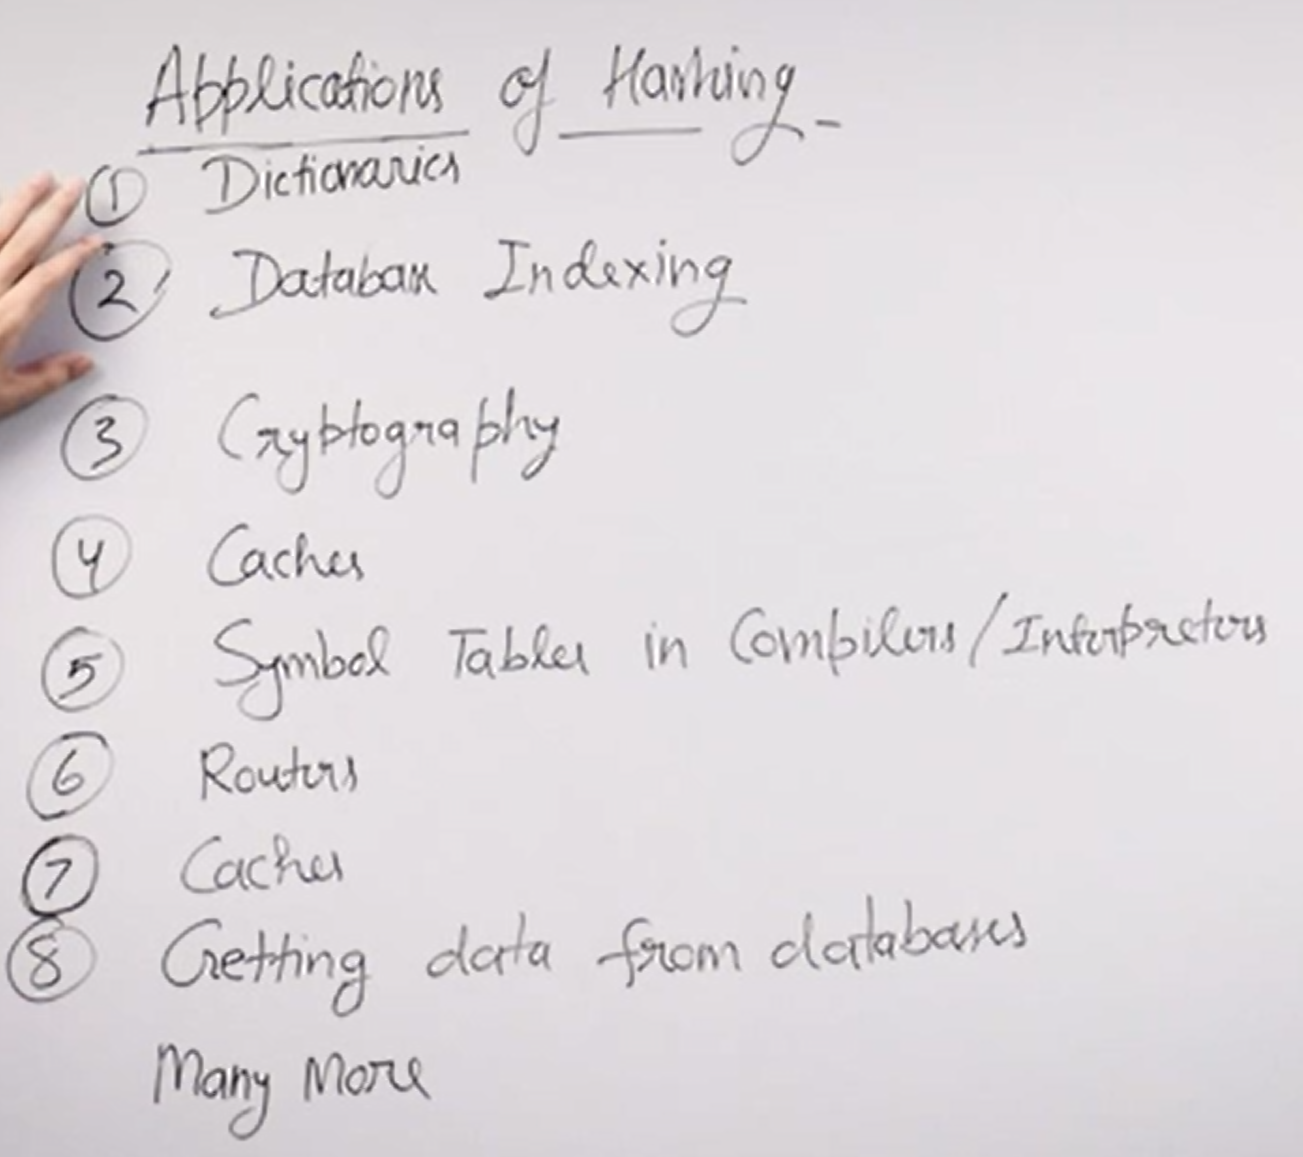 Applications of Hashing -
1 Dictionaries
2 Database Indexing
3 Cryptography
4 Caches
5 Symbol Tables in Compilers/Interpreters
6 Routers
7 Caches
8 Getting data from databases
Many More